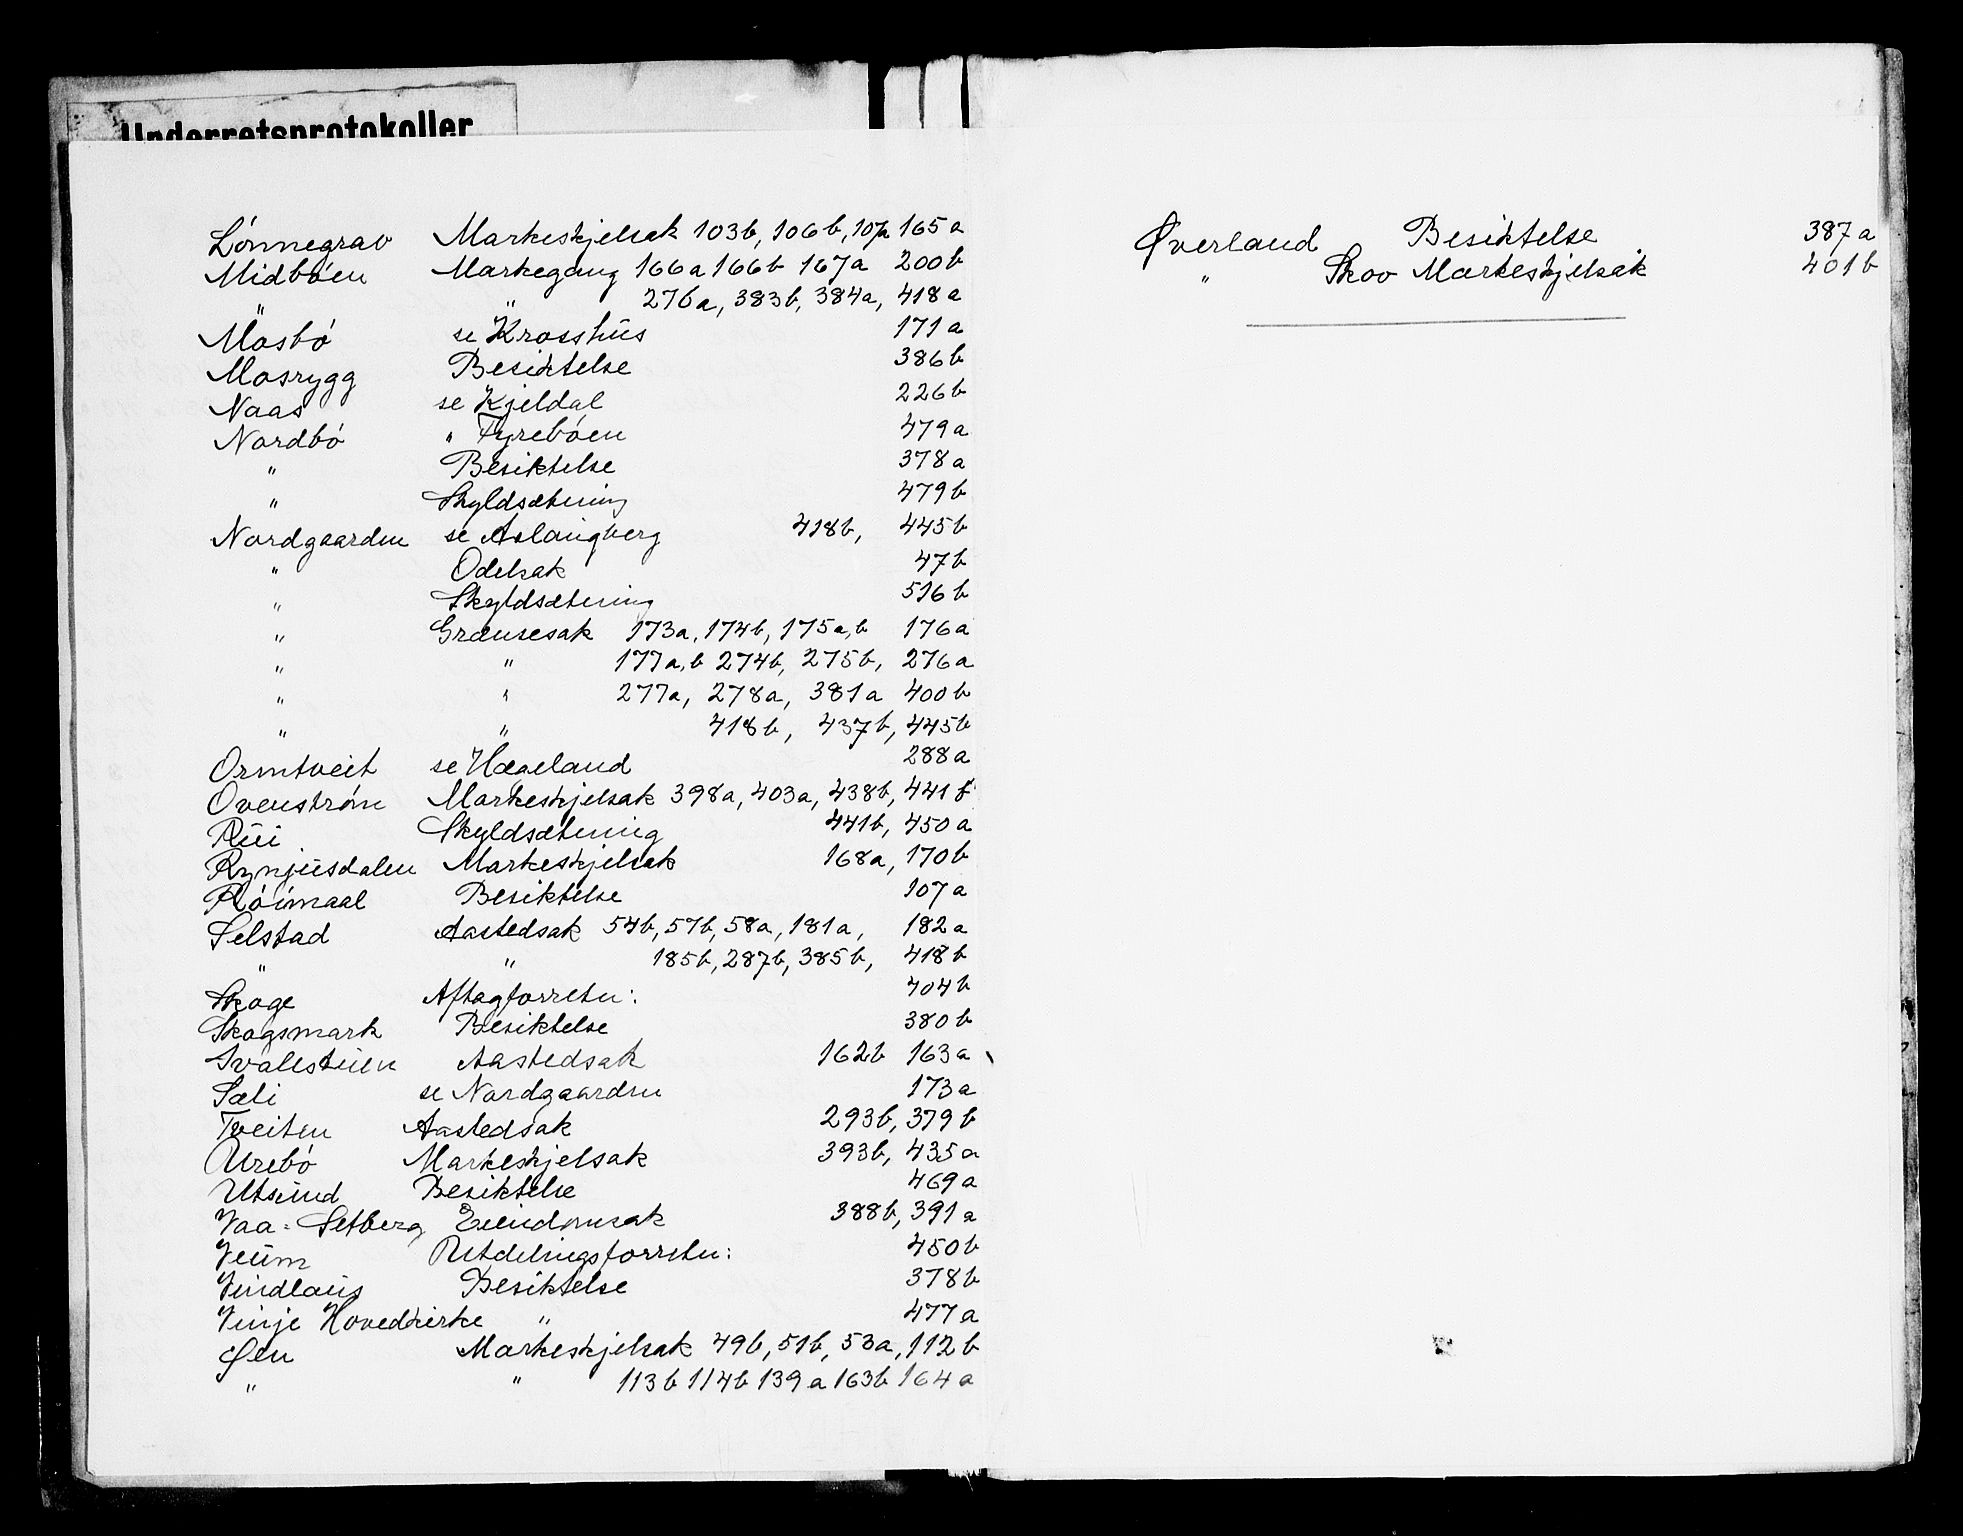 Underretsprotokoller
Lönnegrav Markeskjelsak 103b, 106b, 107a 165a
Midböen Markegang 166a 166b 167a 200b
" " 276a, 383b, 384a, 418a
Mosbö se Krosshus 171a
Mosrygg Besiktelse 386b
Naas se Kjeldal 226b
Nordbö " Fyreböen 479a
" Besiktelse 378a
" Skyldsætning 479b
Nordgaarden se Aslaugberg 418b, 445b
" Odelsak 47b
" Skyldsætning 516b
" Grænsesak 173a, 174b, 175a,b 176a
" " 177a,b 274b, 275b, 276a
" " 277a, 278a, 381a 400b
" " 418b, 437b, 445b
Ormtveit se Hægeland 288a
Ovenström Markeskjelsak 398a, 403a, 438b, 441b
Rui Skyldsætning 441b, 450a
Rynjusdalen Markeskjelsak 168a, 170b
Röimaal Besiktelse 107a
Selstad Aastedsak 54b, 57b, 58a, 181a, 182a
" " 185b, 287b, 385b, 418b
Skoge Aftagforretn: 404b
Skogsmark Besiktelse 380b
Svalestuen Aastedsak 162b 163a
Sæli se Nordgaarden 173a
Tveiten Aastedsak 293b, 379b
Urebö Markeskjelsak 393b, 435a
Utsund Besiktelse 469a
Vaa-Setberg Eiendomsak 388b, 391a
Veum Utdelingsforretn: 450b
Vindlaus Besiktelse 378b
Vinje Hovedkirke " 477a
Öen Markeskjelsak 49b, 51b, 53a, 112b
" " 113b 114b 139a 163b 164a
Øverland Besiktelse 387a
" Skov Markeskjelsak 401b